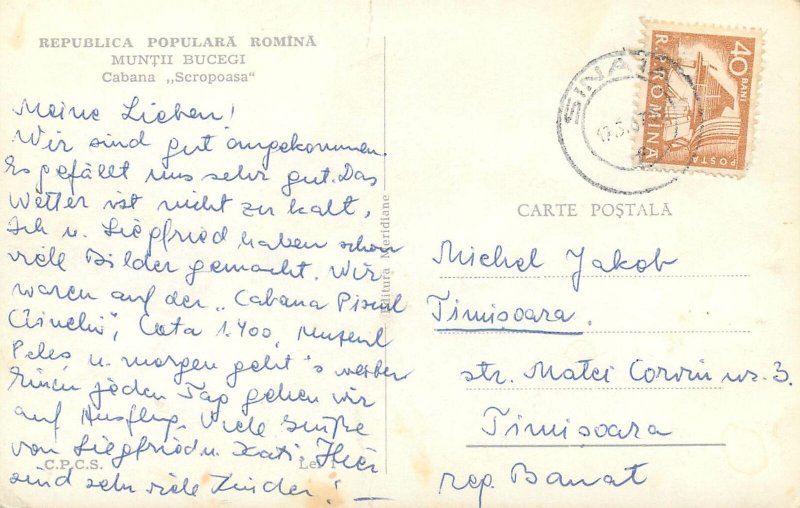 REPUBLICA POPULARĂ ROMÎNĂ
MUNȚII BUCEGI
Cabana „Scropoasa"
Meine Lieben!
Wir sind gut angekommen.
Es gefällt uns sehr gut. Das
Wetter ist nicht zu kalt,
Ich u. Siegfried haben schon
viele Bilder gemacht. Wir
waren auf der „Cabana Piscul
Cîinelui", Cota 1.400, Museul
Peleș u. morgen geht's weiter
jeden Tag gehen wir
auf Ausflug. Viele Grüße
von Siegfried u. Kati. Hier
sind sehr viele Kinder!
C.P.C.S.
Lei 1
Editura Meridiane
SINAIA
17.3.63
40 BANI
R.P. ROMINA
POSTA
CARTE POȘTALĂ
Michel Jakob
Timișoara.
str. Matei Corvin nr. 3.
Timișoara
reg. Banat